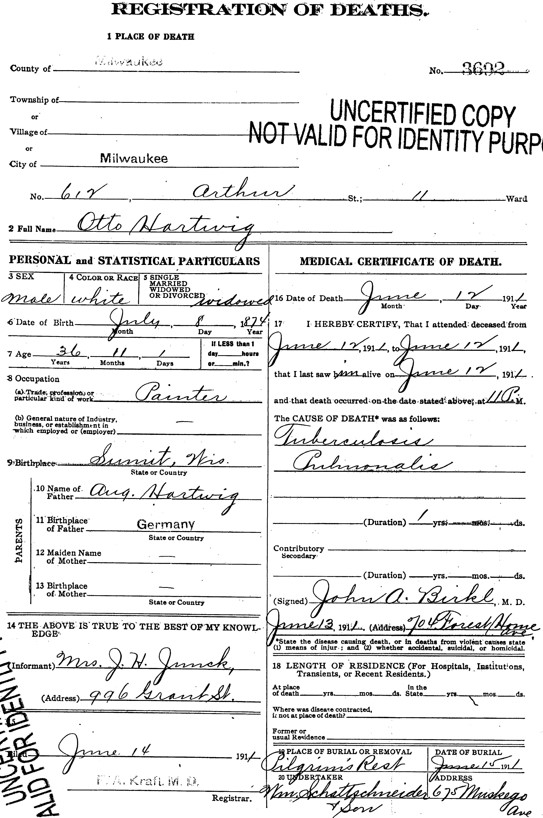 REGISTRATION OF DEATHS.
1 PLACE OF DEATH
County of Milwaukee
No. 3692
Township of
or
Village of
or
City of Milwaukee
UNCERTIFIED COPY
NOT VALID FOR IDENTITY PURP
No. 612, Arthur St.; 11 Ward
2 Full Name Otto Hartwig
PERSONAL and STATISTICAL PARTICULARS
3 SEX
male
4 COLOR OR RACE
white
5 SINGLE
MARRIED
WIDOWED
OR DIVORCED widowed
6 Date of Birth July 8, 1874
Month Day Year
7 Age 36 11 1
Years Months Days
If LESS than 1
day hours
or min.?
8 Occupation
(a) Trade, profession or
particular kind of work Painter
(b) General nature of Industry,
business, or establishment in
which employed or (employer) —
9 Birthplace Sumit, Wis.
State or Country
PARENTS
10 Name of
Father Aug. Hartwig
11 Birthplace
of Father Germany
State or Country
12 Maiden Name
of Mother —
13 Birthplace
of Mother —
State or Country
14 THE ABOVE IS TRUE TO THE BEST OF MY KNOWL-
EDGE
(Informant) Mrs. J. H. Junck,
(Address) 996 Grant St.
Filed June 14 1911
F. A. Kraft, M. D.
Registrar.
UNCERTIFI
ALID FOR IDENTI
MEDICAL CERTIFICATE OF DEATH.
16 Date of Death June, 12 1911
Month Day Year
17 I HEREBY CERTIFY, That I attended deceased from
June 12, 1911, to June 12, 1911,
that I last saw him alive on June 12, 1911,
and that death occurred on the date stated above, at 11 P. M.
The CAUSE OF DEATH* was as follows:
Tuberculosis
Pulmonalis
(Duration) 1 yrs. mos. ds.
Contributory
Secondary
(Duration) yrs. mos. ds.
(Signed) John A. Birkl, M. D.
June 13, 1911. (Address) 704 Forest Home
Ave
*State the disease causing death, or in deaths from violent causes state
(1) means of injury; and (2) whether accidental, suicidal, or homicidal.
18 LENGTH OF RESIDENCE (For Hospitals, Institutions,
Transients, or Recent Residents.)
At place
of death yrs. mos. ds.
in the
State yrs. mos. ds.
Where was disease contracted,
if not at place of death?
Former or
usual Residence
19 PLACE OF BURIAL OR REMOVAL
Pilgrim's Rest
DATE OF BURIAL
June 15 1911
20 UNDERTAKER
Wm. Schattschneider
& Son
ADDRESS
675 Muskego
Ave